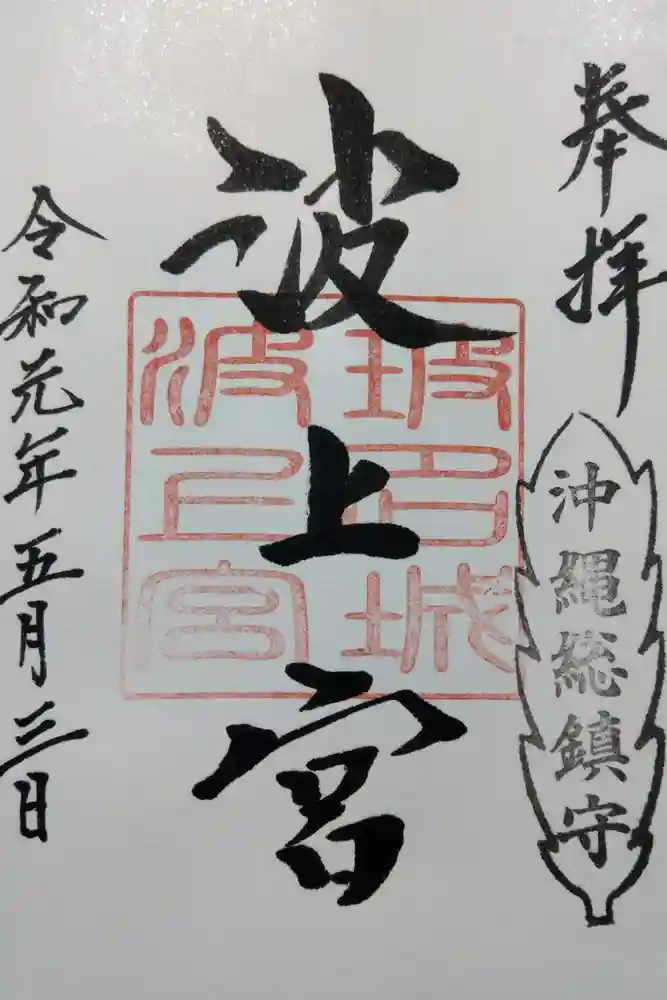 奉拝
沖縄総鎮守
波上宮
玻城
波上宮
令和元年五月三日